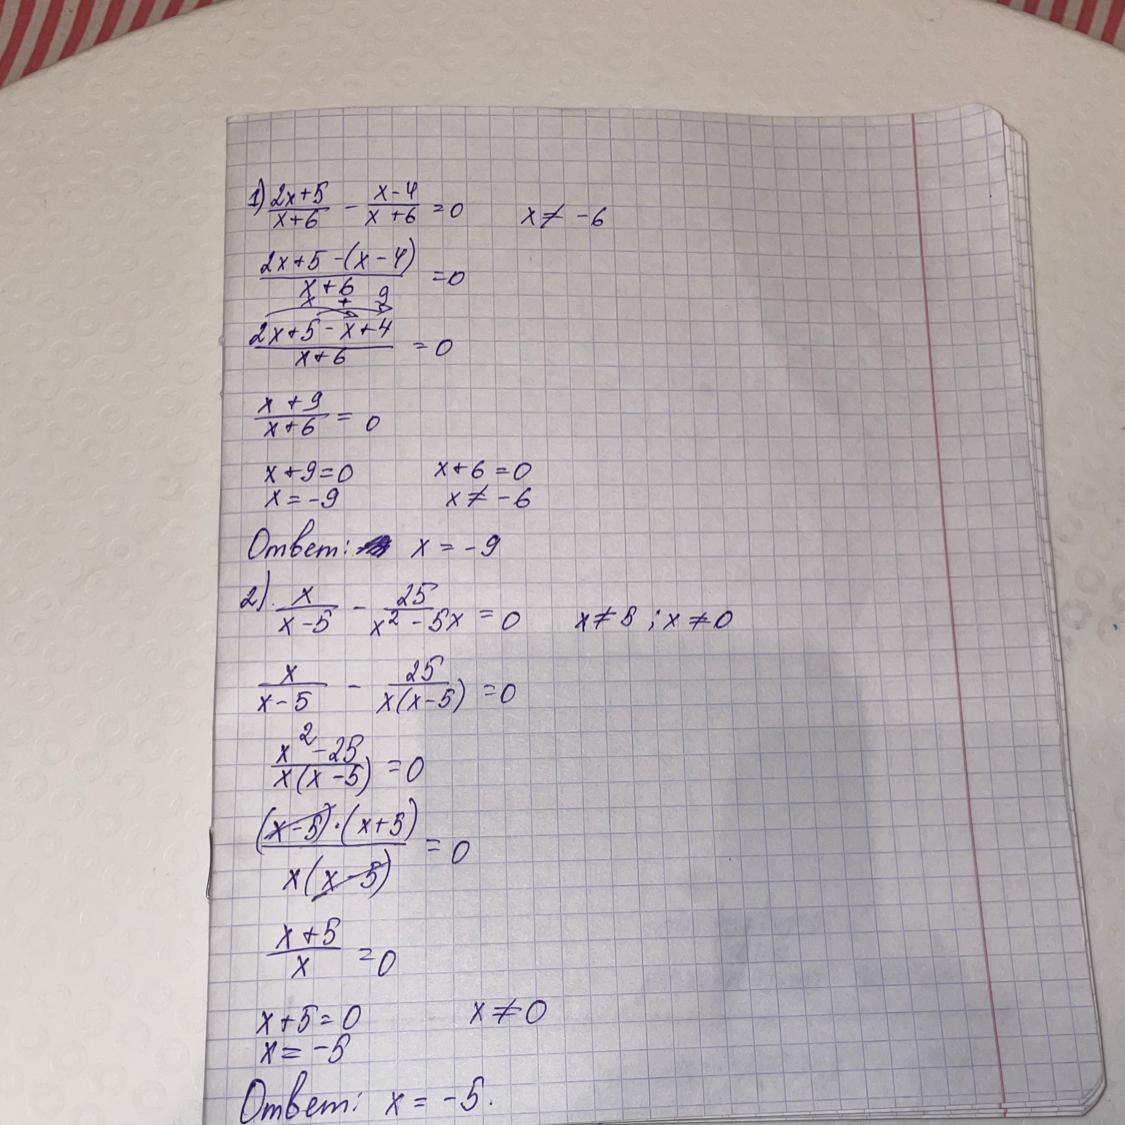 1) (2x+5)/(x+6) - (x-4)/(x+6) = 0   x ≠ -6
(2x+5-(x-4))/(x+6) = 0
x + 9
(2x+5-x+4)/(x+6) = 0
(x+9)/(x+6) = 0
x+9=0   x+6=0
x=-9   x ≠ -6
Ответ: x = -9
2). x/(x-5) - 25/(x²-5x) = 0   x ≠ 5 ; x ≠ 0
x/(x-5) - 25/(x(x-5)) = 0
(x²-25)/(x(x-5)) = 0
((x-5)·(x+5))/(x(x-5)) = 0
(x+5)/x = 0
x+5=0   x ≠ 0
x=-5
Ответ: x = -5.